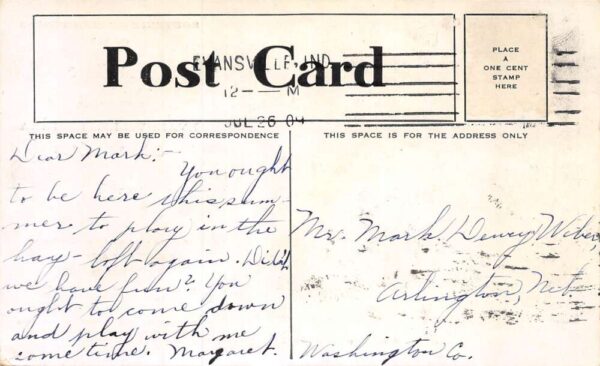 Post Card
EVANSVILLE, IND.
12 — M
JUL 26 04
PLACE
A
ONE CENT
STAMP
HERE
THIS SPACE MAY BE USED FOR CORRESPONDENCE
THIS SPACE IS FOR THE ADDRESS ONLY
Dear Mark:-
You ought
to be here this sum-
mer to play in the
hay-loft again. Didn't
we have fun? You
ought to come down
and play with me
some time. Margaret.
Mr. Mark Dewey
Arlington, Neb.
Washington Co.